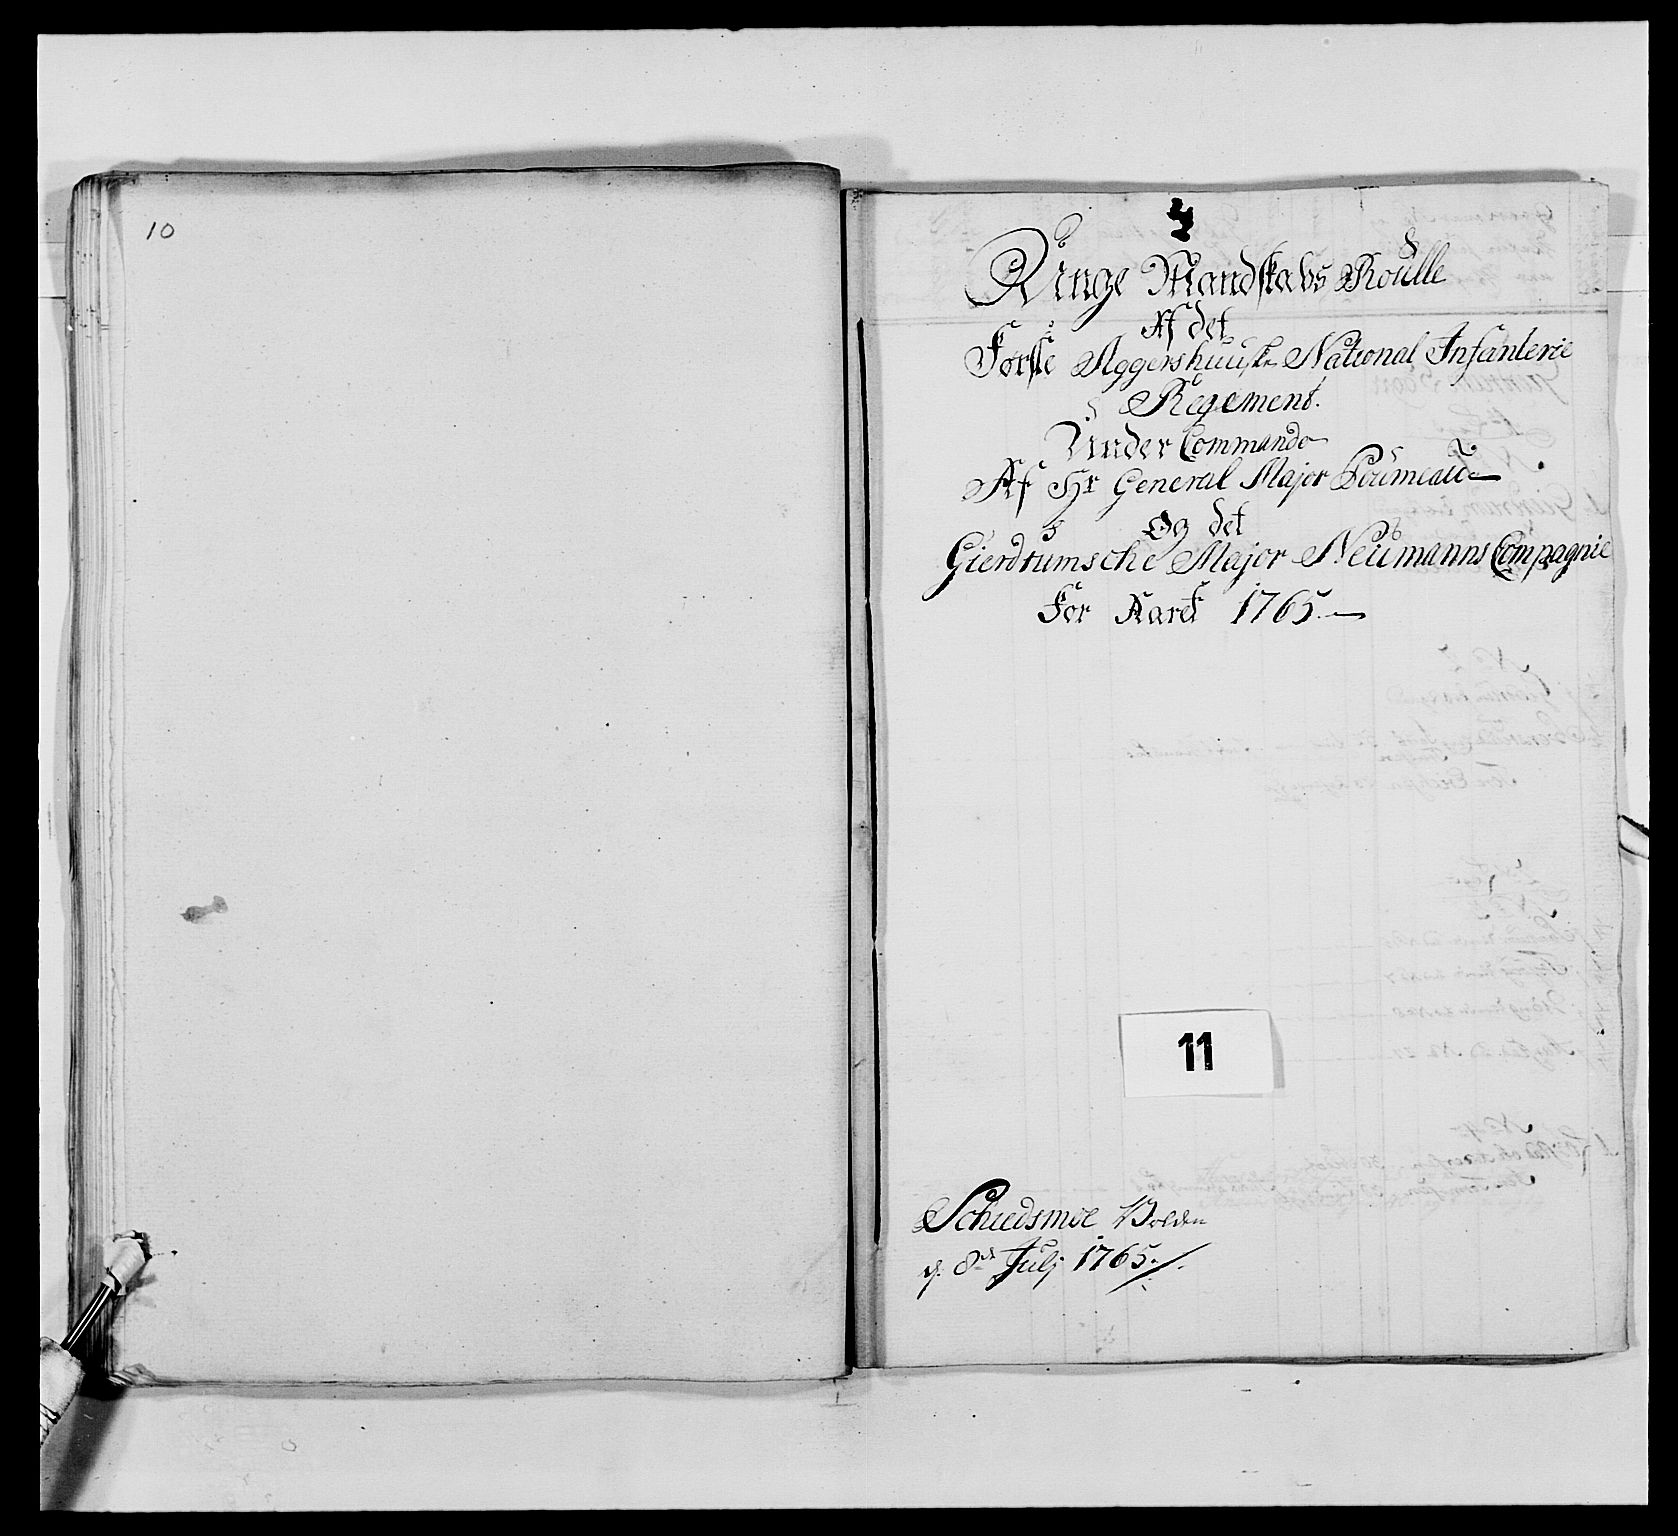 10
Unge Mandskabs Roulle
Af det
Første Aggershuuske National Infanterie
Regement.
Under Commando
Af Hr General Major Poumeau
Og det
Gierdrumsche Major Neumanns Compagnie
For Aaret 1765.
11
Schiedsmoe Volden
d. 8de Julj 1765.